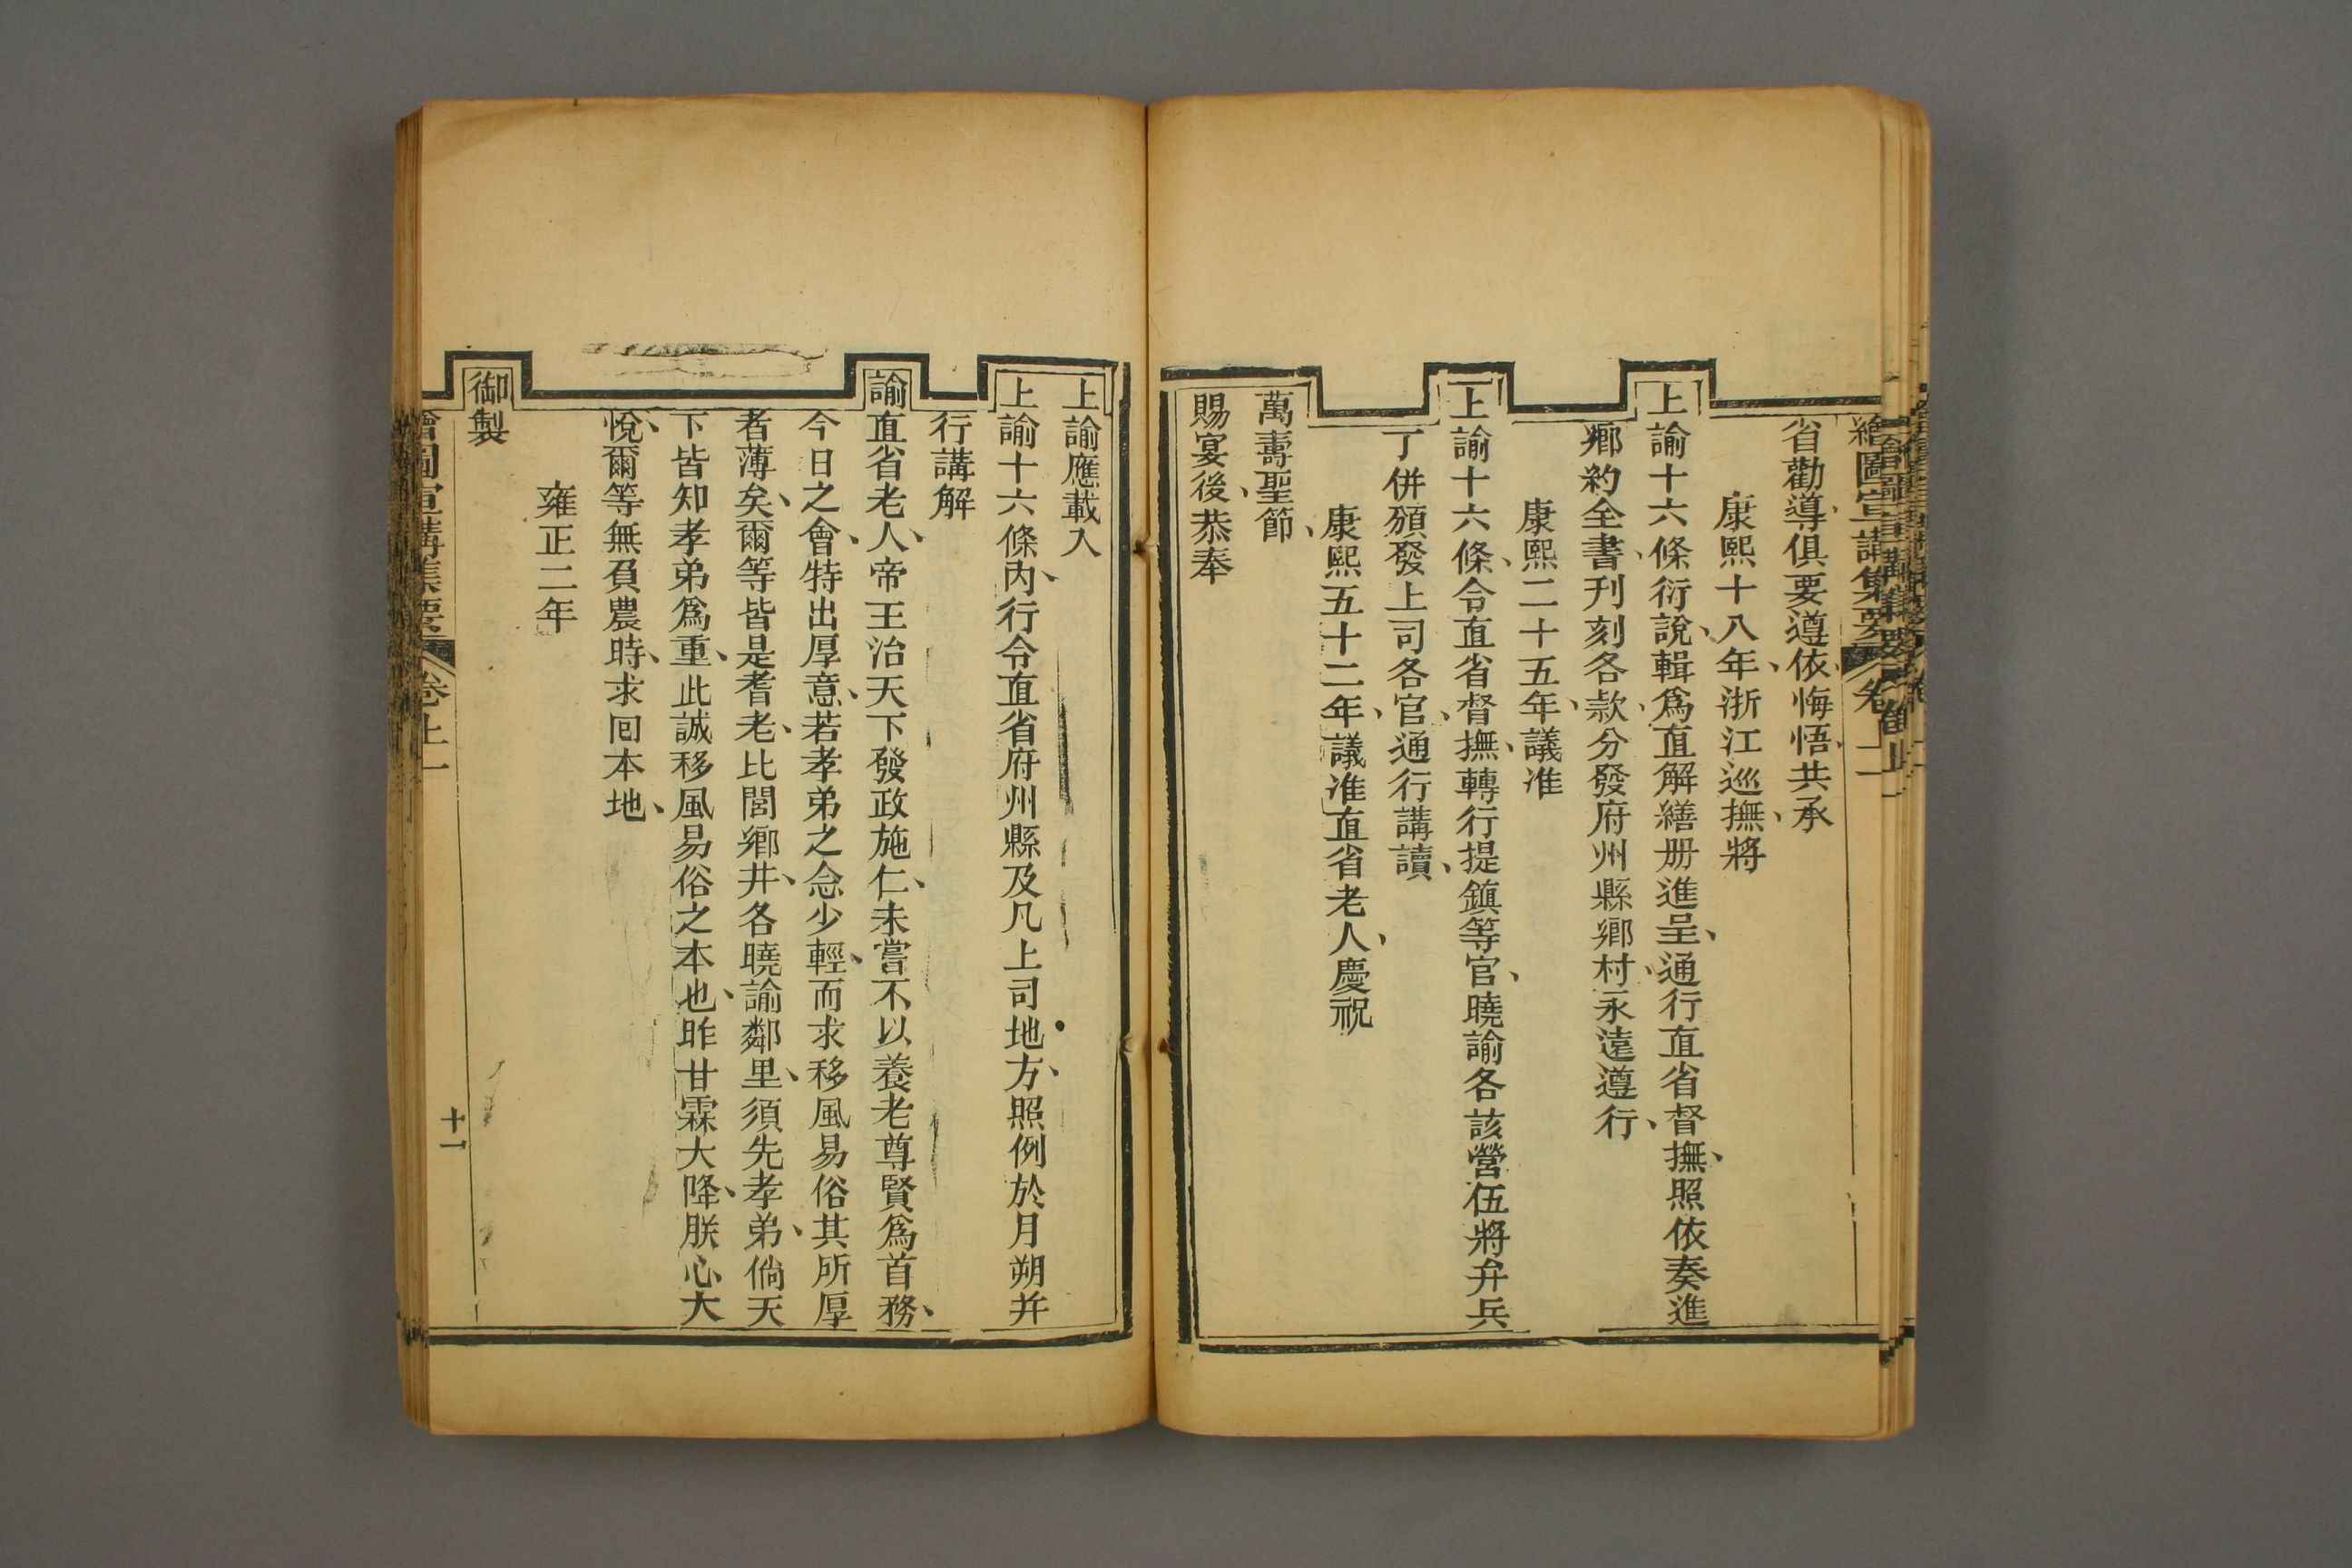 繪圖宣講集要 卷
省勸導、俱要遵依、悔悟、共承
康熙十八年、浙江巡撫、將
上諭十六條衍說、輯爲直解繕册進呈、通行直省督撫、照依奏進
鄉約全書、刊刻各款、分發府州縣鄉村、永遠遵行、
康熙二十五年、議准
上諭十六條、令直省督撫、轉行提鎭等官、曉諭各該營伍將弁兵
丁併頒發上司各官、通行講讀、
康熙五十二年、議准直省老人、慶祝
萬壽聖節、
賜宴後、恭奉
上諭應載入
上諭十六條、內行令直省府州縣及凡上司地方、照例於月朔并
行講解
諭直省老人、帝王治天下發政施仁、未嘗不以養老尊賢爲首務、
今日之會、特出厚意、若孝弟之念少輕、而求移風易俗其所厚
者薄矣、爾等皆是耆老、比閭鄉井、各曉諭鄰里、須先孝弟、倘天
下皆知孝弟爲重、此誠移風易俗之本也、昨甘霖大降、朕心大
悅、爾等無負農時、求囘本地、
雍正二年
御製
繪圖宣講集要 卷上一 十一